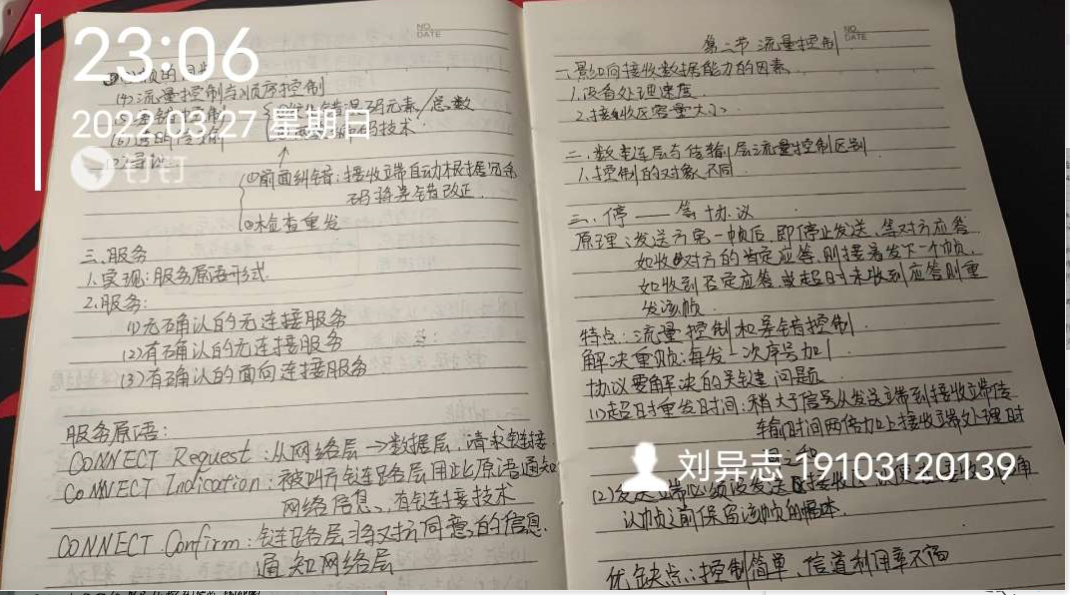 23:06
2022.03.27 星期日
钉钉
NO.
DATE
(4)流量控制与顺序控制
①前向纠错:接收端自动根据冗余
码将差错改正.
②检查重发
三.服务
1.实现:服务原语形式.
2.服务:
(1)无确认的无连接服务
(2)有确认的无连接服务
(3)有确认的面向连接服务
服务原语:
CONNECT Request:从网络层→数据层,请求链接
CONNECT Indication:被叫方链路层用此原语通知
网络信息,有链接技术
CONNECT Confirm:链路层将对方同意的信息
通知网络层
NO.
DATE
第二节 流量控制
一.影响接收数据能力的因素
1.设备处理速度.
2.接收容量大小.
二.数链层与传输层流量控制区别
1.控制的对象不同.
三.停——等协议
原理:发送方第一帧后,即停止发送,等对方应答
如收对方的肯定应答,则接着发下一个帧.
如收到否定应答,或超时未收到应答则重
发该帧.
特点:流量控制和差错控制
解决重帧:每发一次序号加1
协议要解决的关键问题
(1)超时重发时间:稍大于信号从发送端到接收端传
输时间两倍加上接收端处理时
刘异志 19103120139
(2)发送端必须
认帧之前保留该帧的副本.
优缺点:控制简单、信道利用率不高